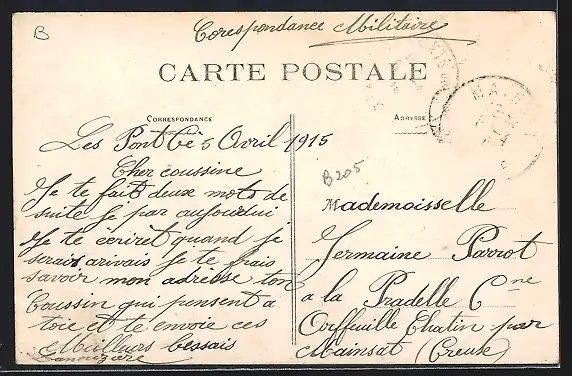 B
Corespondance Militaire
CARTE POSTALE
CORRESPONDANCE
ADRESSE
Les Pont Cé 5 Avril 1915
Cher coussine
Je te fait deux mots de
suite je par aujourdui
Je te écriret quand je
serait arivais Je te frais
savoir mon adresse ton
Coussin qui pensent a
toie et te envoie ces
Mailleurs bessais
B205
Mademoisselle
Jermaine Parrot
a la Pradelle Cne
Orffeuille Chatin par
Mainsat (Creuse)